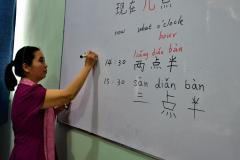 现在几点
now what o'clock
hour
liǎng diǎn bàn
14:30 两点半
15:30 sān diǎn bàn
三点半